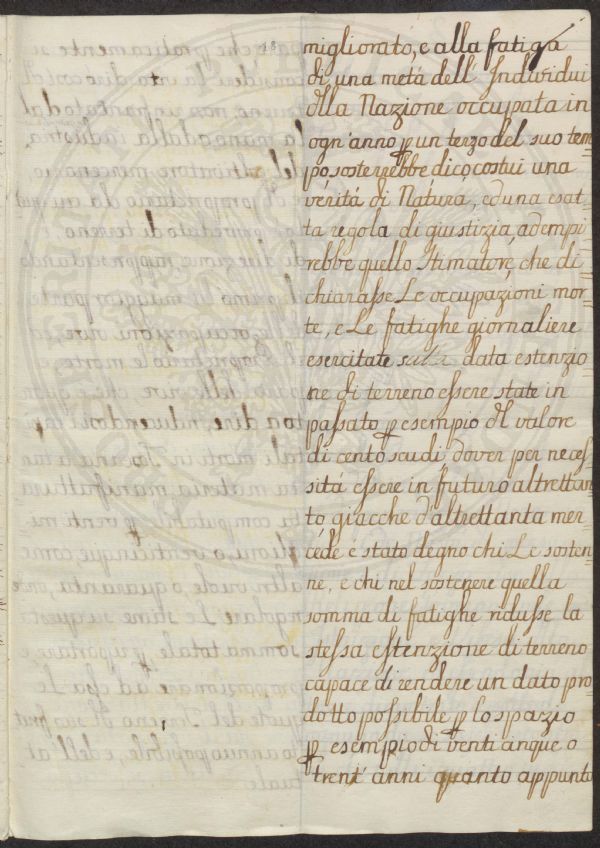 migliorato, e alla fatiga
di una metá dell' Individui
dlla Nazione occupata in
ogn'anno p un terzo del suo tem
po sosterrebbe dico costui una
veritá di Natura, ed una esat
ta regola di giustizia adempi
rebbe quello stimatore, che di
chiarasse Le occupazioni mor
te, e Le fatighe giornaliere
esercitate sulla data estenzio
ne di terreno essere state in
passato p esempio dl valore
di cento scudi, dover per neces
sitá essere in futuro altrettan
to giacche d'altrettanta mer
cede e stato degno chi Le sosten
ne, e chi nel sostenere quella
somma di fatighe ridusse la
stessa estenzione di terreno
capace di rendere un dato pro
dotto possibile p lo spazio
p esempio di venti cinque o
trent' anni quanto appunto